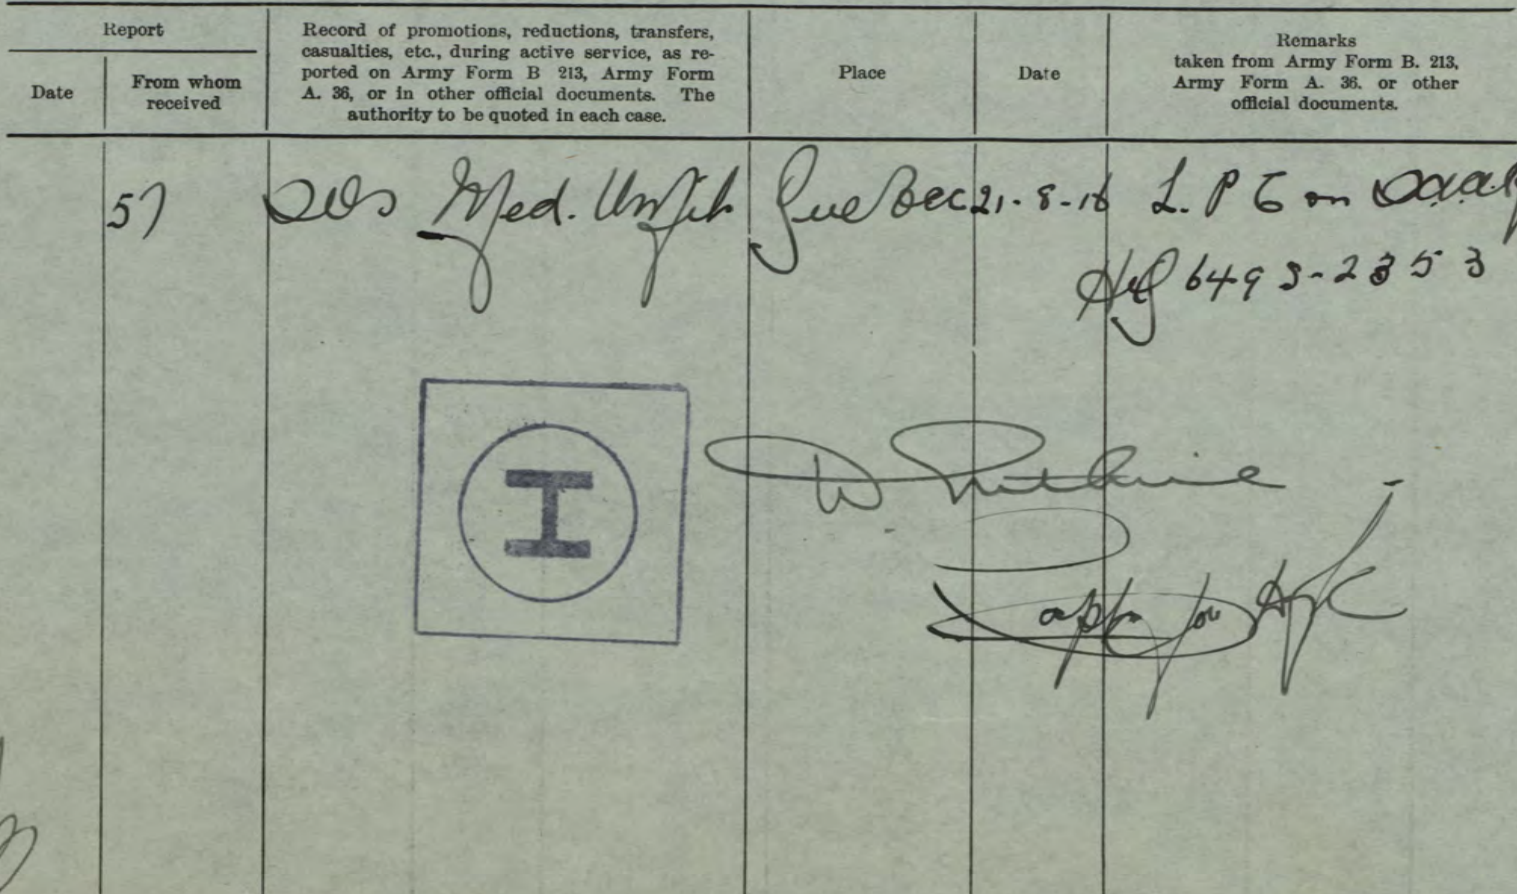 Report
Date
From whom
received
Record of promotions, reductions, transfers,
casualties, etc., during active service, as re-
ported on Army Form B 213, Army Form
A. 36, or in other official documents. The
authority to be quoted in each case.
Place
Date
Remarks
taken from Army Form B. 213,
Army Form A. 36. or other
official documents.
57 SOS Med. Unfit Quebec 21-8-16 L. P C on
HQ 649 3-2353
H
for